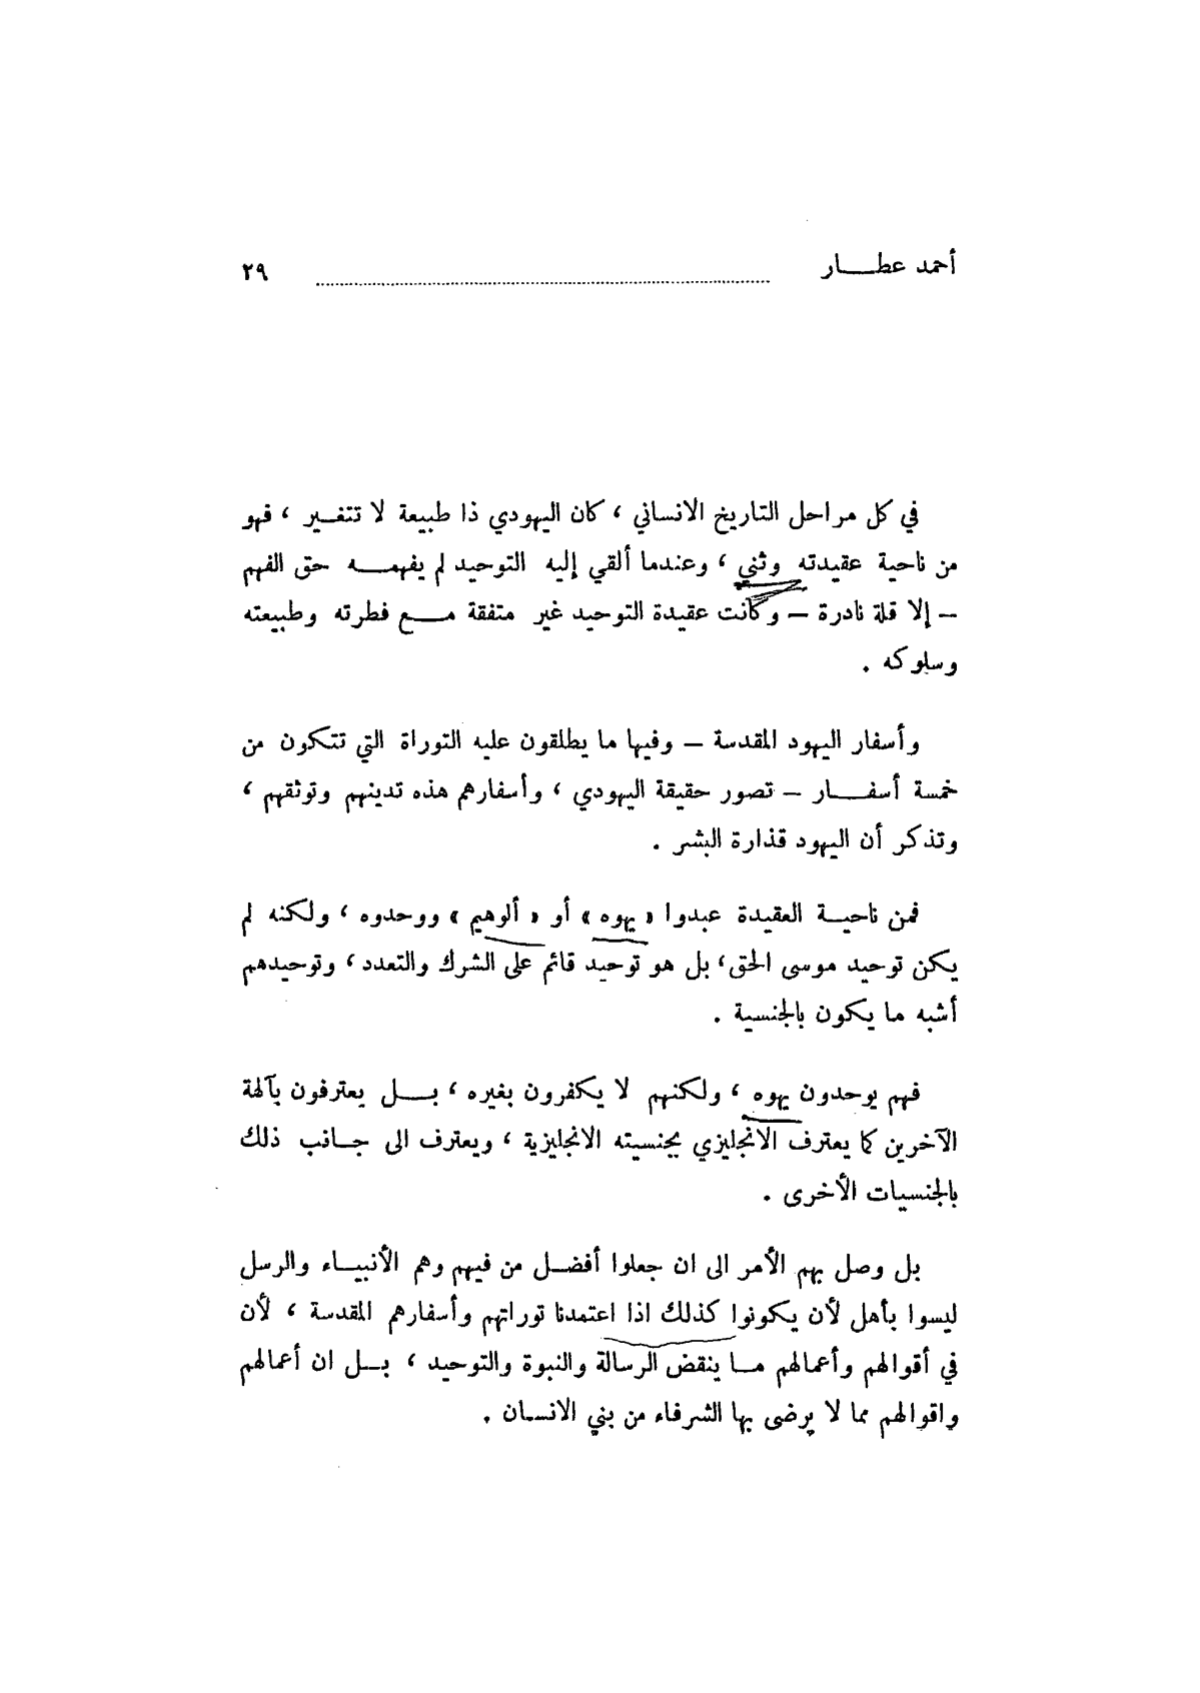 أحمد عطــار ٢٩
في كل مراحل التاريخ الانساني ، كان اليهودي ذا طبيعة لا تتغــير ، فهو
من ناحية عقيدته وثني ، وعندما ألقي إليه التوحيد لم يفهمــه حق الفهم
– إلا قلة نادرة – وكانت عقيدة التوحيد غير متفقة مــع فطرته وطبيعته
وسلوكه .
وأسفار اليهود المقدسة – وفيها ما يطلقون عليه التوراة التي تتكون من
خمسة أسفــار – تصور حقيقة اليهودي ، وأسفارهم هذه تدينهم وتوثقهم ،
وتذكر أن اليهود قذارة البشر .
فمن ناحيــة العقيدة عبدوا « يهوه » أو « ألوهيم » ووحدوه ، ولكنه لم
يكن توحيد موسى الحق ، بل هو توحيد قائم على الشرك والتعدد ، وتوحيدهم
أشبه ما يكون بالجنسية .
فهم يوحدون يهوه ، ولكنهم لا يكفرون بغيره ، بــل يعترفون بآلهة
الآخرين كما يعترف الانجليزي بجنسيته الانجليزية ، ويعترف الى جــانب ذلك
بالجنسيات الأخرى .
بل وصل بهم الأمر الى ان جعلوا أفضــل من فيهم وهم الأنبيــاء والرسل
ليسوا بأهل لأن يكونوا كذلك اذا اعتمدنا توراتهم وأسفارهم المقدسة ، لأن
في أقوالهم وأعمالهم مــا ينقض الرسالة والنبوة والتوحيد ، بــل ان أعمالهم
واقوالهم مما لا يرضى بها الشرفاء من بني الانسان .